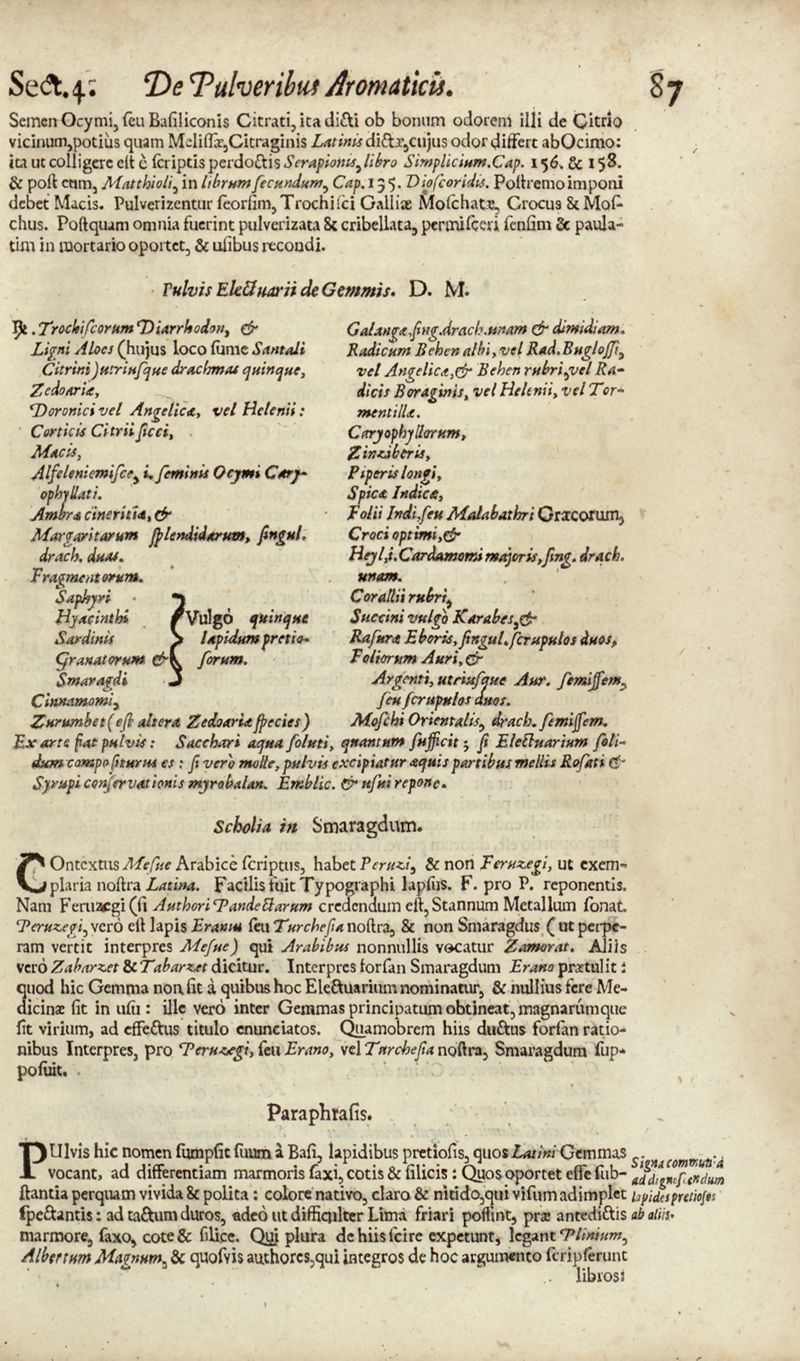 Sect.4. De Pulveribus Aromaticis. 87
Semen Ocymi, ſeu Baſiliconis Citrati, ita dicti ob bonum odorem illi de Citrio
vicinum, potiùs quam Meliſſæ, Citraginis Latinis dictæ, cujus odor differt ab Ocimo:
ita ut colligere eſt è ſcriptis perdoctis Serapionis, libro Simplicium. Cap. 156. & 158.
& poſt eum, Matthioli, in librum ſecundum, Cap. 135. Dioſcoridis. Poſtremo imponi
debet Macis. Pulverizentur ſeorſim, Trochiſci Galliæ Moſchatæ, Crocus & Moſ-
chus. Poſtquam omnia fuerint pulverizata & cribellata, permiſceri ſenſim & paula-
tim in mortario oportet, & uſibus recondi.
Pulvis Electuarii de Gemmis. D. M.
℞. Trochiſcorum Diarrhodon, &
Ligni Aloes (hujus loco ſume Santali
Citrini) utriuſque drachmas quinque,
Zedoariæ,
Doronici vel Angelicæ, vel Helenii:
Corticis Citrii ſicci,
Macis,
Alfeleniemiſce, i. ſeminis Ocymi Cary-
ophyllati.
Ambræ cineritiæ, &
Margaritarum ſplendidarum, ſingul.
drach. duas.
Fragmentorum.
Saphyri
Hyacinthi
Sardinis
Granatorum &
Smaragdi
Vulgò quinque
lapidum pretio-
ſorum.
Cinnamomi,
Zurumbet (eſt altera Zedoariæ ſpecies)
Galangæ, ſing. drach. unam & dimidiam.
Radicum Behen albi, vel Rad. Bugloſſi,
vel Angelicæ, & Behen rubri, vel Ra-
dicis Boraginis, vel Helenii, vel Tor-
mentillæ.
Caryophyllorum,
Zinziberis,
Piperis longi,
Spicæ Indicæ,
Folii Indi, ſeu Malabathri Græcorum,
Croci optimi, &
Heyl, i. Cardamomi majoris, ſing. drach.
unam.
Corallii rubri,
Succini vulgò Karabes, &
Raſuræ Eboris, ſingul. ſcrupulos duos,
Foliorum Auri, &
Argenti, utriuſque Aur. ſemiſſem,
ſeu ſcrupulos duos.
Moſchi Orientalis, drach. ſemiſſem.
Ex arte fiat pulvis: Sacchari aqua ſoluti, quantum ſufficit; ſi Electuarium ſoli-
dum compoſiturus es: ſi vero molle, pulvis excipiatur æquis partibus mellis Roſati &
Syrupi conſervationis myrobalan. Emblic. & uſui repone.
Scholia in Smaragdum.
COntextus Meſue Arabicè ſcriptus, habet Peruzi, & non Feruzegi, ut exem-
plaria noſtra Latina. Facilis fuit Typographi lapſus. F. pro P. reponentis.
Nam Feruzegi (ſi Authori Pandectarum credendum eſt, Stannum Metallum ſonat.
Peruzegi, verò eſt lapis Eranus ſeu Turcheſia noſtra, & non Smaragdus (ut perpe-
ram vertit interpres Meſue) qui Arabibus nonnullis vocatur Zamorat. Aliis
verò Zabarzet & Tabarzet dicitur. Interpres forſan Smaragdum Erano prætulit:
quod hic Gemma non ſit à quibus hoc Electuarium nominatur, & nullius fere Me-
dicinæ ſit in uſu: ille verò inter Gemmas principatum obtineat, magnarúmque
ſit virium, ad effectus titulo enunciatos. Quamobrem hiis ductus forſan ratio-
nibus Interpres, pro Peruzegi, ſeu Erano, vel Turcheſia noſtra, Smaragdum ſup-
poſuit.
Paraphraſis.
PUlvis hic nomen ſumpſit ſuum à Baſi, lapidibus pretioſis, quos Latini Gemmas
vocant, ad differentiam marmoris ſaxi, cotis & ſilicis: Quos oportet eſſe ſub-
ſtantia perquam vivida & polita: colore nativo, claro & nitido, qui viſum adimplet
ſpectantis: ad tactum duros, adeò ut difficulter Lima friari poſſint, præ antedictis
marmore, ſaxo, cote & ſilice. Qui plura de hiis ſcire expetunt, legant Plinium,
Albertum Magnum, & quoſvis authores, qui integros de hoc argumento ſcripſerunt
libros:
Signa communia
lapides pretioſos
ab aliis.